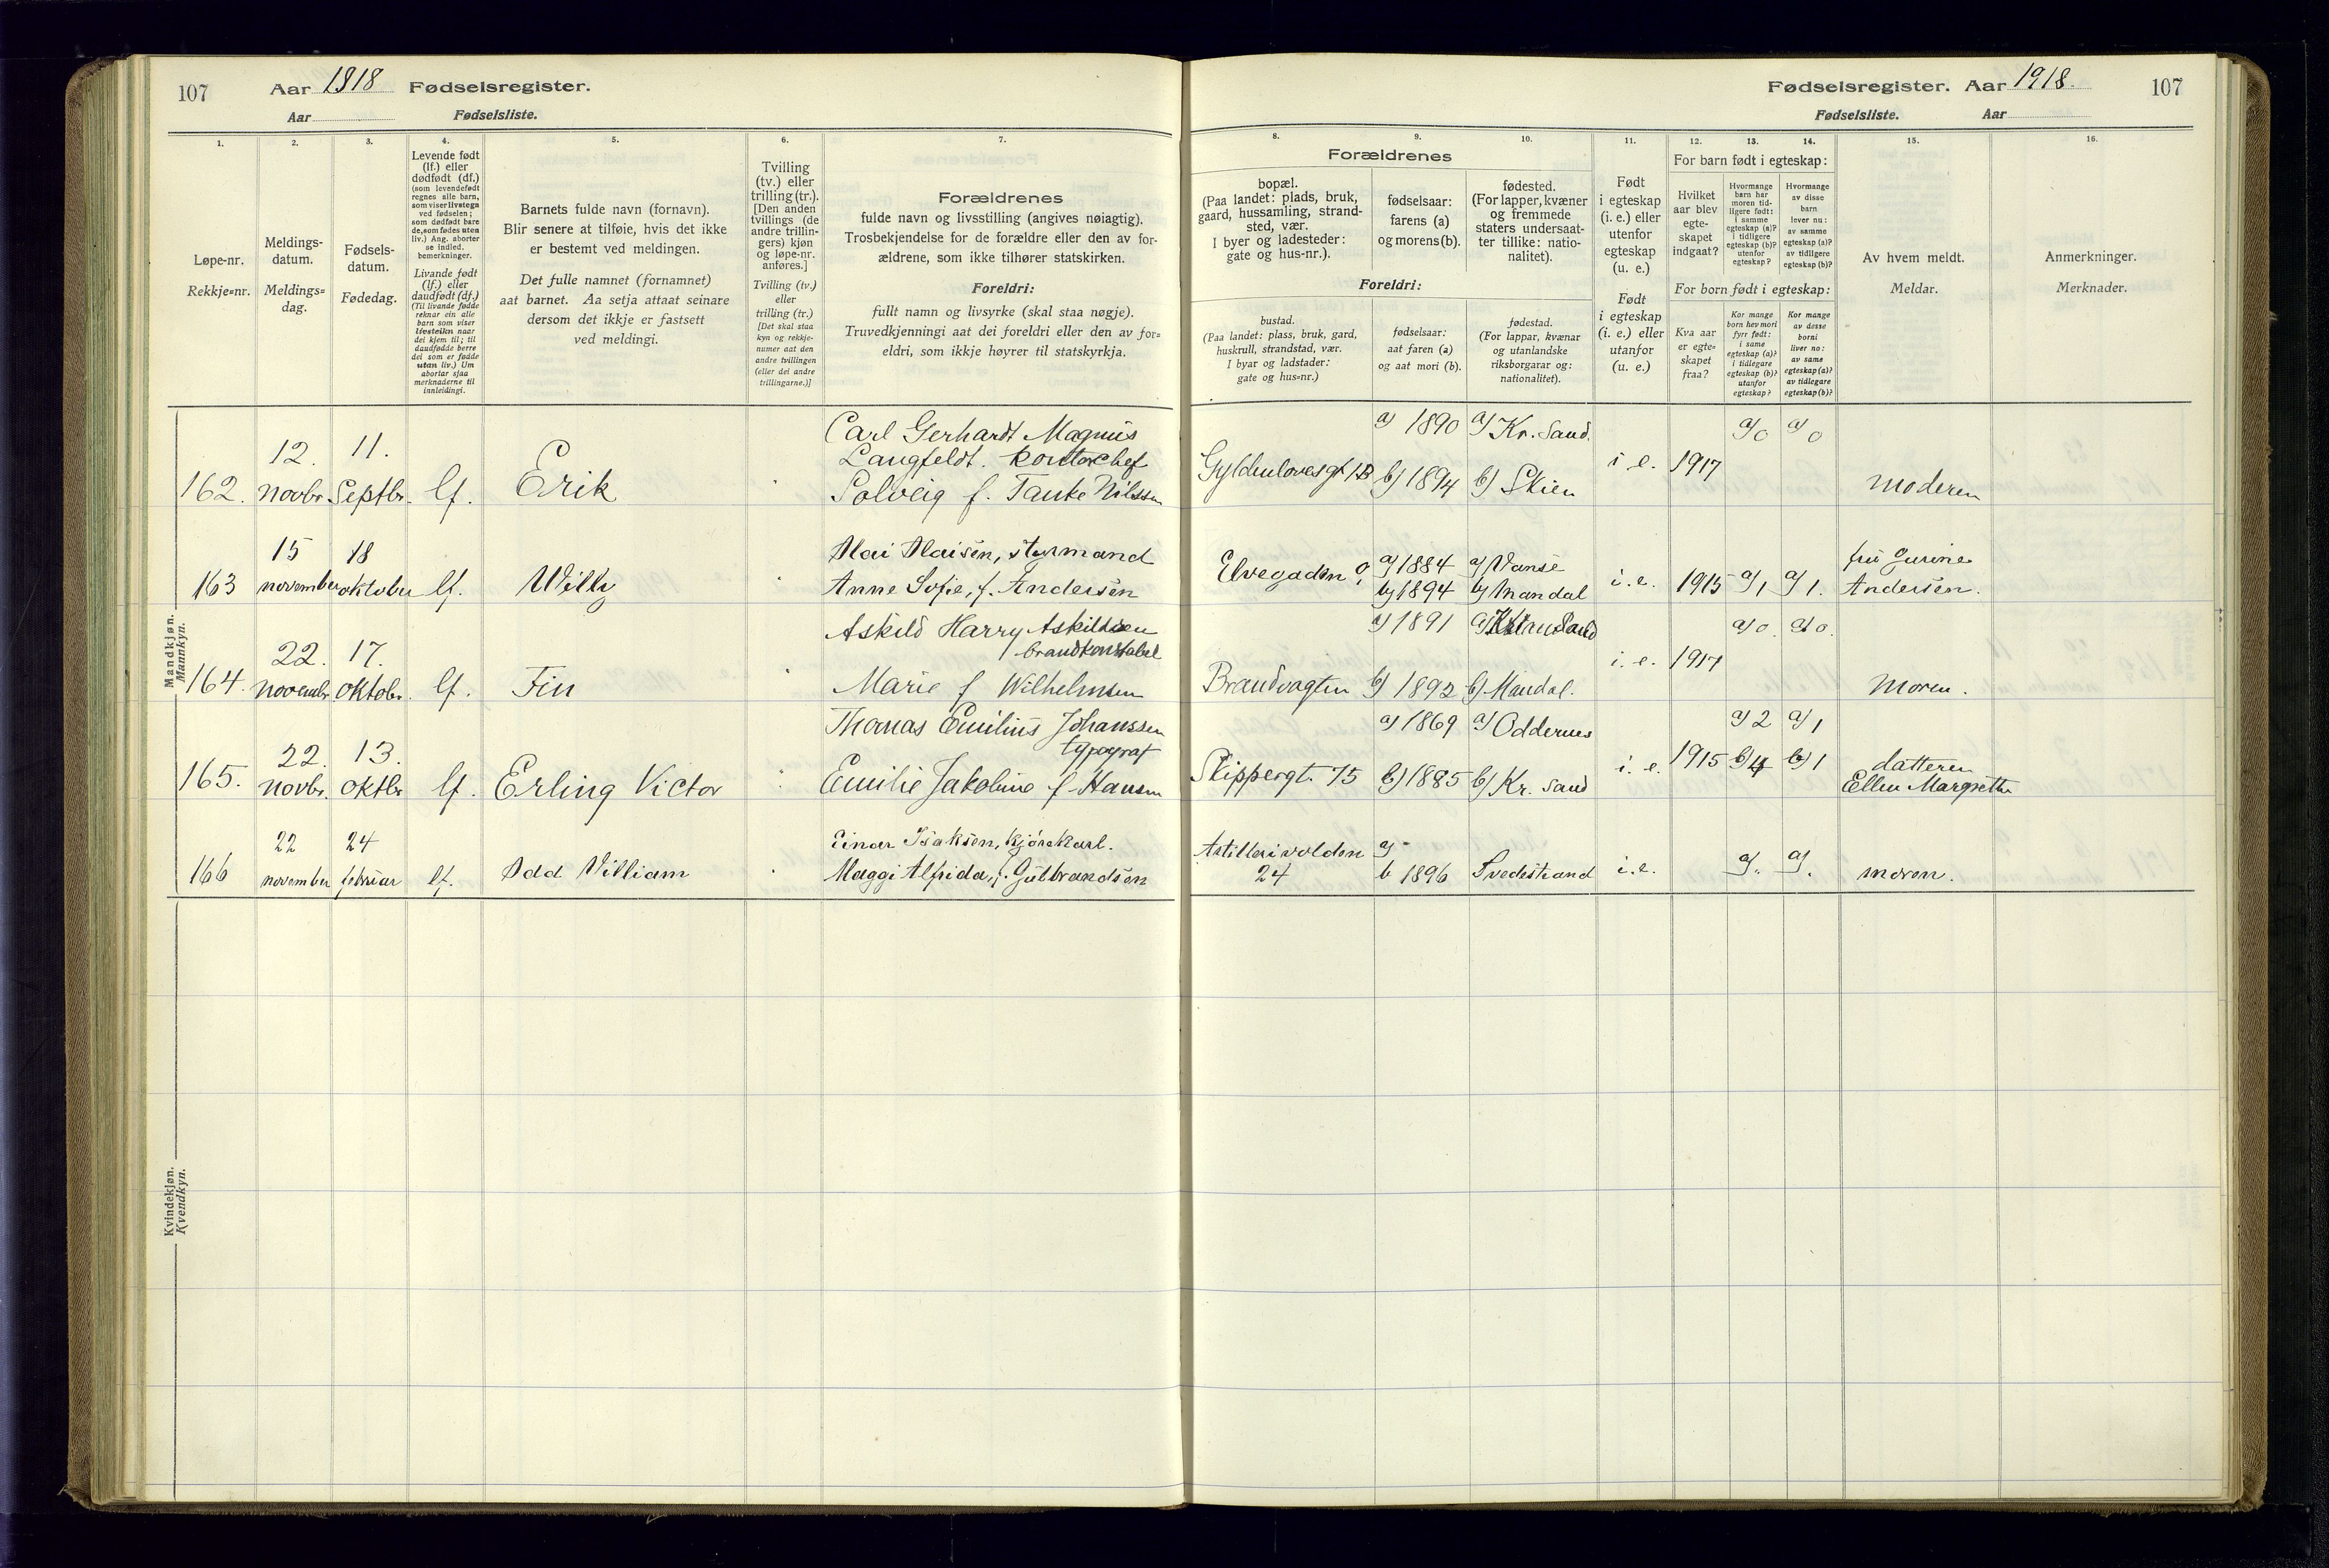 107 Aar 1918 Fødselsregister.
Aar Fødselsliste.
1.
Løpe-nr.
Rekkje=nr.
2.
Meldings-
datum.
Meldings=
dag.
3.
Fødsels-
datum.
Fødedag.
4.
Levende født
(lf.) eller
dødfødt (df.)
(som levendefødt
regnes alle barn,
som viser livstegn
ved fødselen;
som dødfødt bare
de, som fødes uten
liv.) Ang. aborter
se indled.
bemerkninger.
Livande født
(lf.) eller
daudfødt (df.)
(Til livande fødde
reknar ein alle
barn som viser
livsteikn naar
dei kjem til; til
daudfødde berre
dei som er fødde
utan liv.) Um
abortar sjaa
merknaderne til
innleidingi.
5.
Barnets fulde navn (fornavn).
Blir senere at tilføie, hvis det ikke
er bestemt ved meldingen.
Det fulle namnet (fornamnet)
aat barnet. Aa setja attaat seinare
dersom det ikkje er fastsett
ved meldingi.
6.
Tvilling
(tv.) eller
trilling (tr.).
[Den anden
tvillings (de
andre trillin-
gers) kjøn
og løpe-nr.
anføres.]
Tvilling (tv.)
eller
trilling (tr.)
[Det skal staa
kyn og rekkje-
numer aat den
andre tvillingen
(eller dei andre
trillingarne.)]
7.
Forældrenes
fulde navn og livsstilling (angives nøiagtig).
Trosbekjendelse for de forældre eller den av for-
ældrene, som ikke tilhører statskirken.
Foreldri:
fullt namn og livsyrke (skal staa nøgje).
Truvedkjenningi aat dei foreldri eller den av for=
eldri, som ikkje høyrer til statskyrkja.
Mandkjøn.
Mannkyn.
162. 12. novbr. 11. Septbr. lf. Erik
Carl Gerhardt Magnus
Langfeldt. kontorchef
Solveig f. Tanke Nilssen
163 15 november 18 oktober lf. Willy
Alai Alaisen, styrmand
Anne Sofie, f. Andersen
164. 22. novembr. 17. oktobr. lf. Fin
Askild Harry Askildsen
brandkonstabel
Marie f Wilhelmsen
165. 22. novbr. 13. oktbr lf. Erling Victor
Thomas Emilius Johanssen
typograf
Emilie Jakobine f. Hansen
166 22 november 24 februar lf. Odd William
Einar Isaksen, kjørekarl.
Maggi Alfrida, f. Gulbrandsen
Kvindekjøn.
Kvendkyn.
Fødselsregister. Aar 1918. 107
Fødselsliste. Aar
8.
Forældrenes
bopæl.
(Paa landet: plads, bruk,
gaard, hussamling, strand-
sted, vær.
I byer og ladesteder:
gate og hus-nr.).
Foreldri:
bustad.
(Paa landet: plass, bruk, gard,
huskrull, strandstad, vær.
I byar og ladstader:
gate og hus=nr.)
9.
fødselsaar:
farens (a)
og morens (b).
fødselsaar:
aat faren (a)
og aat mori (b).
10.
fødested.
(For lapper, kvæner
og fremmede
staters undersaat-
ter tillike: natio-
nalitet).
fødestad.
(For lappar, kvænar
og utanlandske
riksborgarar og:
nationalitet).
11.
Født
i egteskap
(i. e.) eller
utenfor
egteskap
(u. e.)
Født
i egteskap
(i. e.) eller
utanfor
(u. e.)
12. 13. 14.
For barn født i egteskap:
Hvilket
aar blev
egte-
skapet
indgaat?
Hvormange
barn har
moren tid-
ligere født:
i samme
egteskap (a)?
i tidligere
egteskap (b)?
utenfor
egteskap?
Hvormange
av disse
barn
lever nu:
av samme
egteskap (a)?
av tidligere
egteskap (b)?
For born født i egteskap:
Kva aar
er egte=
skapet
fraa?
Kor mange
born hev mori
fyrr født:
i same
egteskap (a)?
i tidlegare
egteskap (b)?
utanfor
egteskap?
Kor mange
av desse
borni
liver no:
av same
egteskap (a)?
av tidlegare
egteskap (b)?
15.
Av hvem meldt.
Meldar.
16.
Anmerkninger.
Merknader.
a) 1890 a) Kr. Sand. a) 0 a) 0
b) 1894 b) Skien i e. 1917 Moderen
Elvegaden a) 1884 a) Vanse fru Gurine
b) 1894 b) Mandal i. e. 1915 a) 1 a) 1. Andersen.
a) 1891 a) Kristiansand a) 0. a) 0.
Brandvagten b) 1892 b) Mandal. i. e. 1917 Moren.
a) 1869 a) Oddernes a) 2 a) 1
Skippergt. 75 b) 1885 b) Kr. sand i. e. 1915 b) 4 b) 1 datteren
Ellen Margrethe
Artillerivolden a) -
24 b 1896 Tvedestrand i. e. a). a). moren.